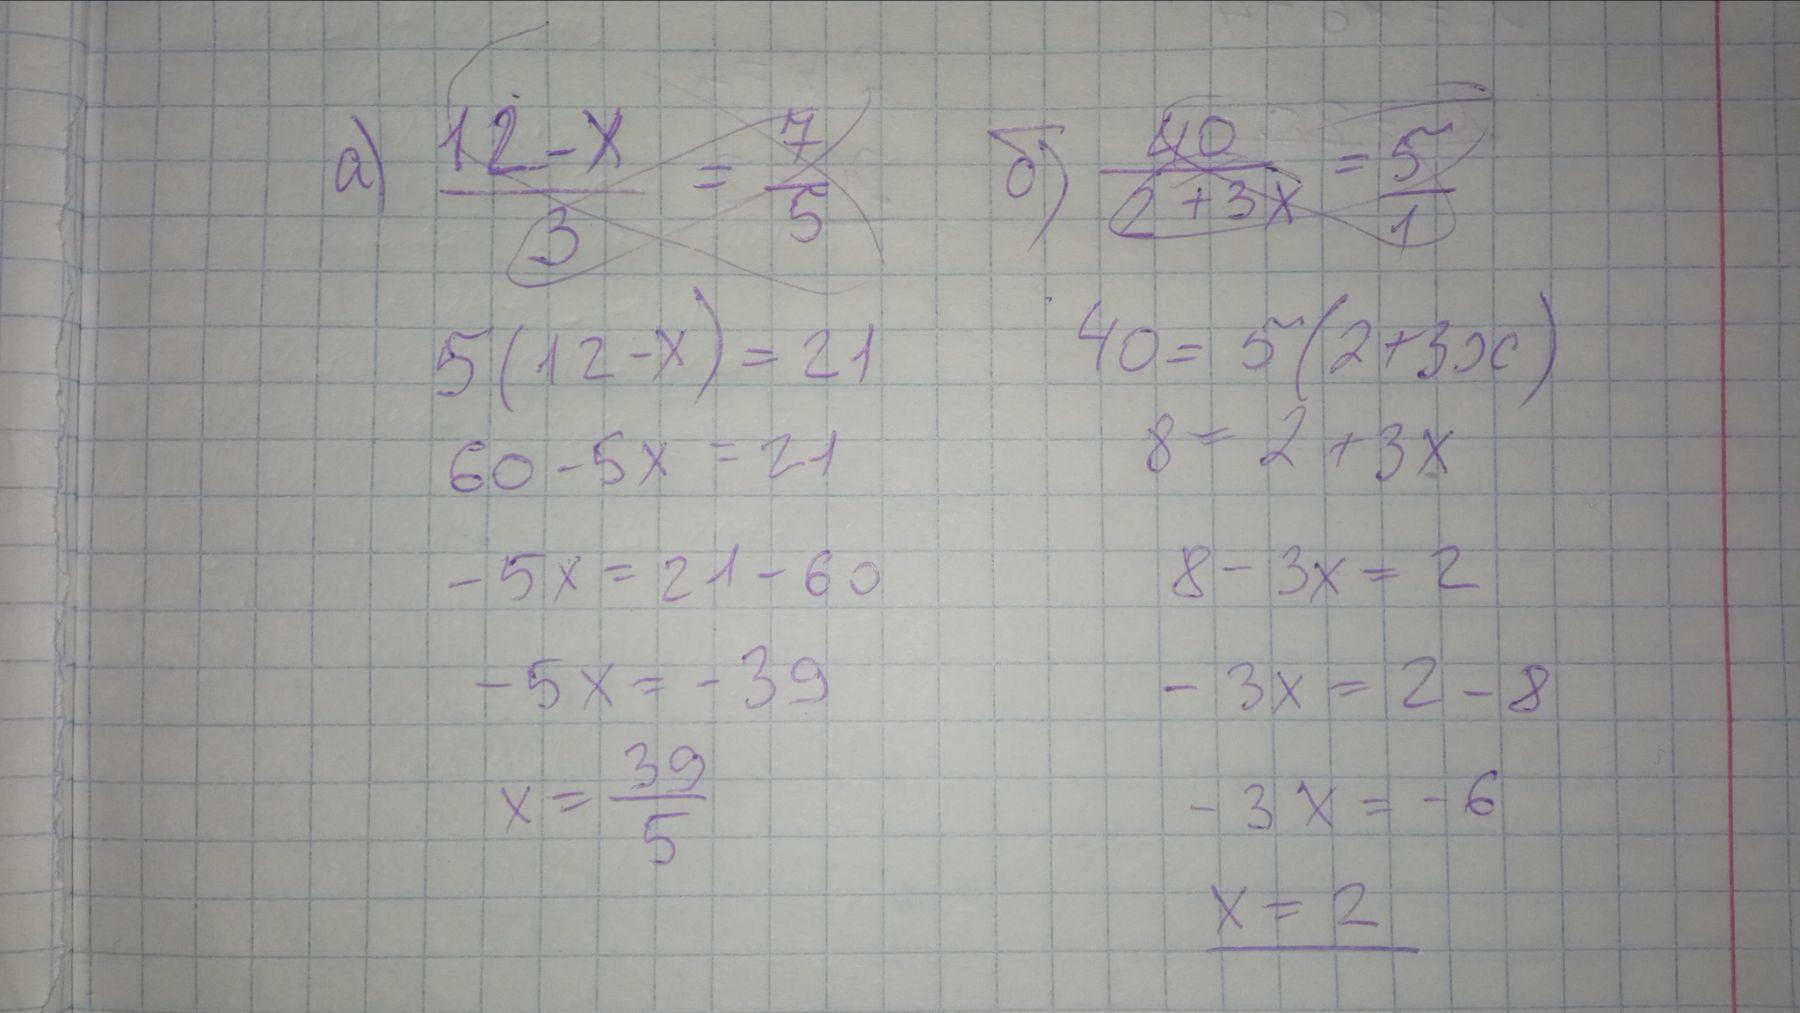 а) (12 - x)/3 = 7/5
5(12 - x) = 21
60 - 5x = 21
- 5x = 21 - 60
- 5x = - 39
x = 39/5
б) 40/(2 + 3x) = 5/1
40 = 5(2 + 3x)
8 = 2 + 3x
8 - 3x = 2
- 3x = 2 - 8
- 3x = - 6
x = 2